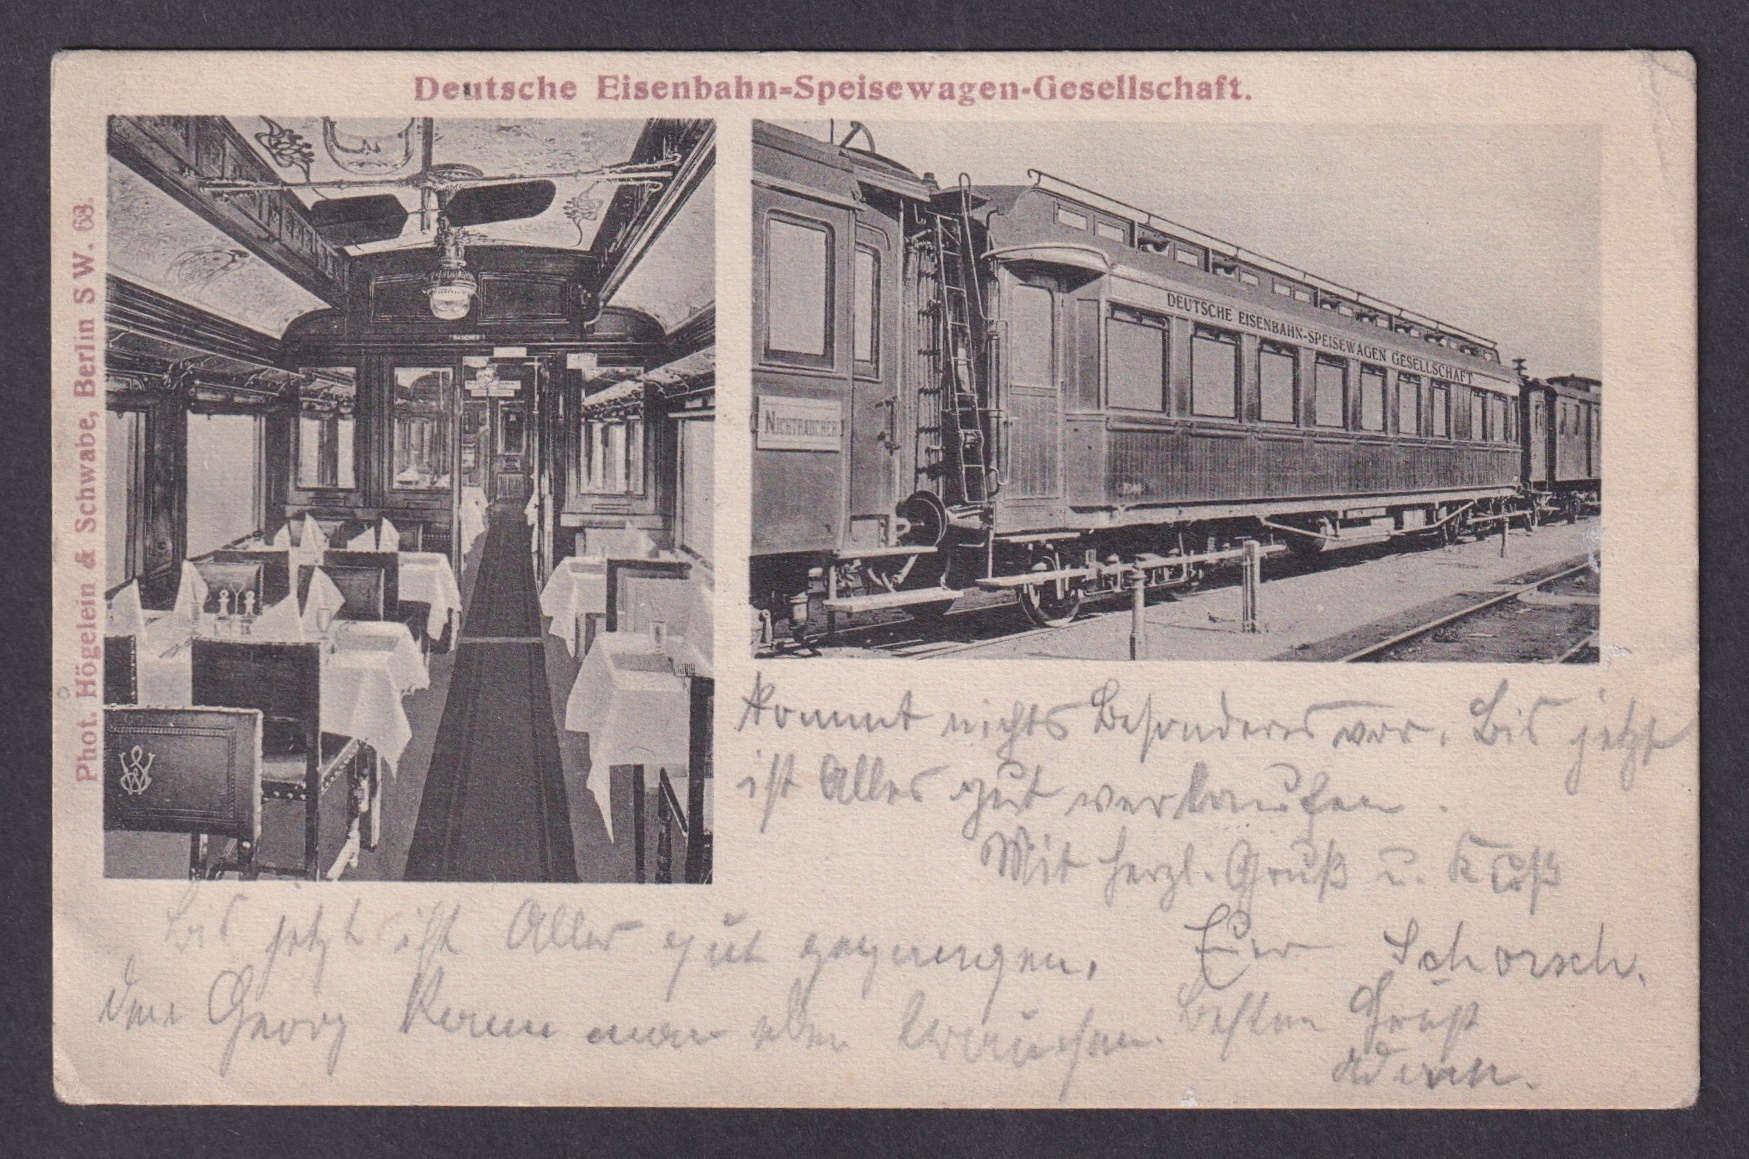 Deutsche Eisenbahn-Speisewagen-Gesellschaft.
Phot. Högelein & Schwabe, Berlin S W. 68.
DEUTSCHE EISENBAHN-SPEISEWAGEN GESELLSCHAFT
NICHTRAUCHER
Kommt nichts Besonderes vor. Bis jetzt
ist Alles gut verlaufen.
Mit herzl. Gruß u. Kuß
Euer Schorsch.
bis jetzt ist Alles gut gegangen,
den Georg kann man eben brauchen.
Besten Gruß